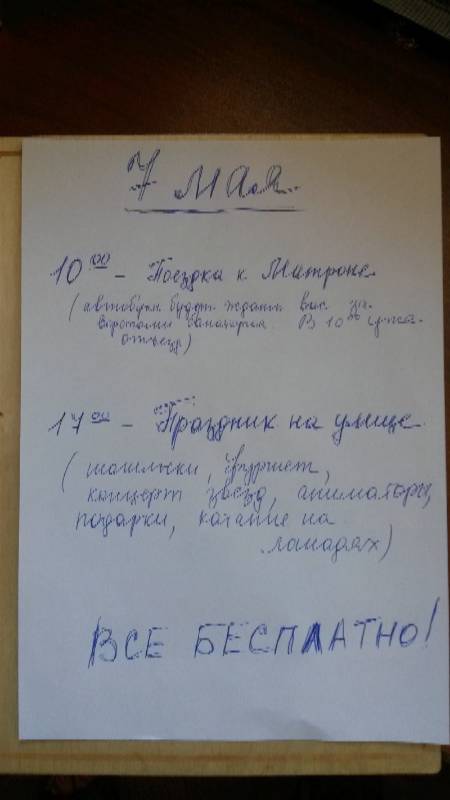 7 мая
10 00 - Поездка к Матроне
(автобусы будут ждать вас за
воротами санатория. В 10 00 уже
отъезд)
17 00 - Праздник на улице
(шашлыки, фуршет,
концерт звезд, аниматоры,
подарки, катание на
лошадях)
ВСЕ БЕСПЛАТНО!